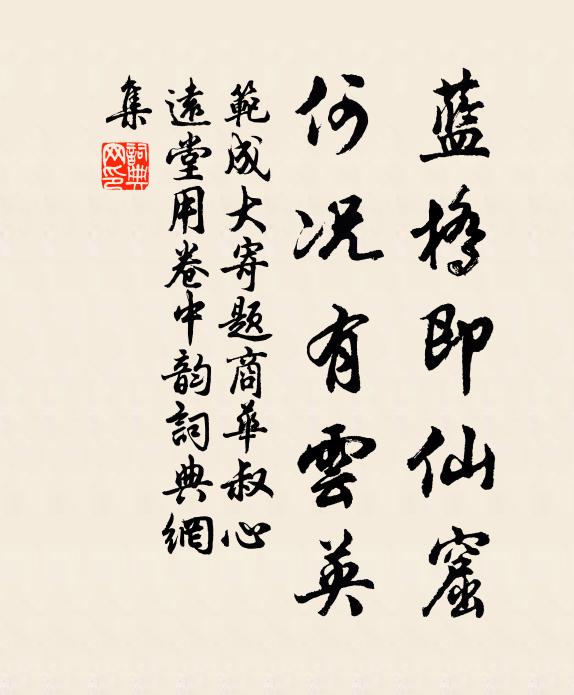 藍橋即仙窟
何況有雲英
範成大寄題商華叔心
遠堂用卷中韵詞典網
集
詞典网印